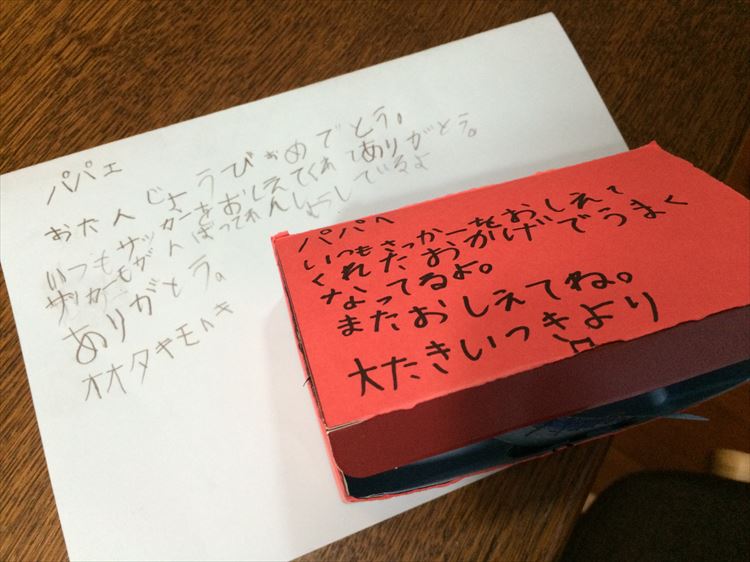 パパエ
お大人じょうびおめでとう。
いつもサッカーをおしえてくれてありがとう。
サッカーもがんばってれんしょうしているよ
ありがとう。
オオタキモトキ
パパへ
いつもさっかーをおしえて
くれたおかげでうまく
なってるよ。
またおしえてね。
大たきいつきより